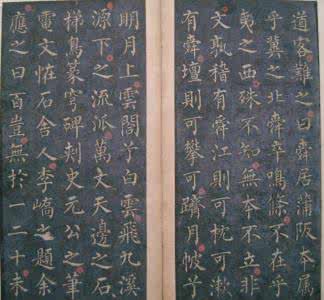 道客難之曰舜居蒲阪本属
乎冀之北舜卒鳴條不在乎
之西殊不知無本不立非
文孰稽有舜江則可枕可漱
有舜壇則可攀可躋月帔予
明月上雲閤予白雲飛九溪
源下之流派萬丈天邊之石
梯鳥篆穹碑刺史元公之筆
電文怪石舍人李嶠之題余
應之曰百豈無於一二十未